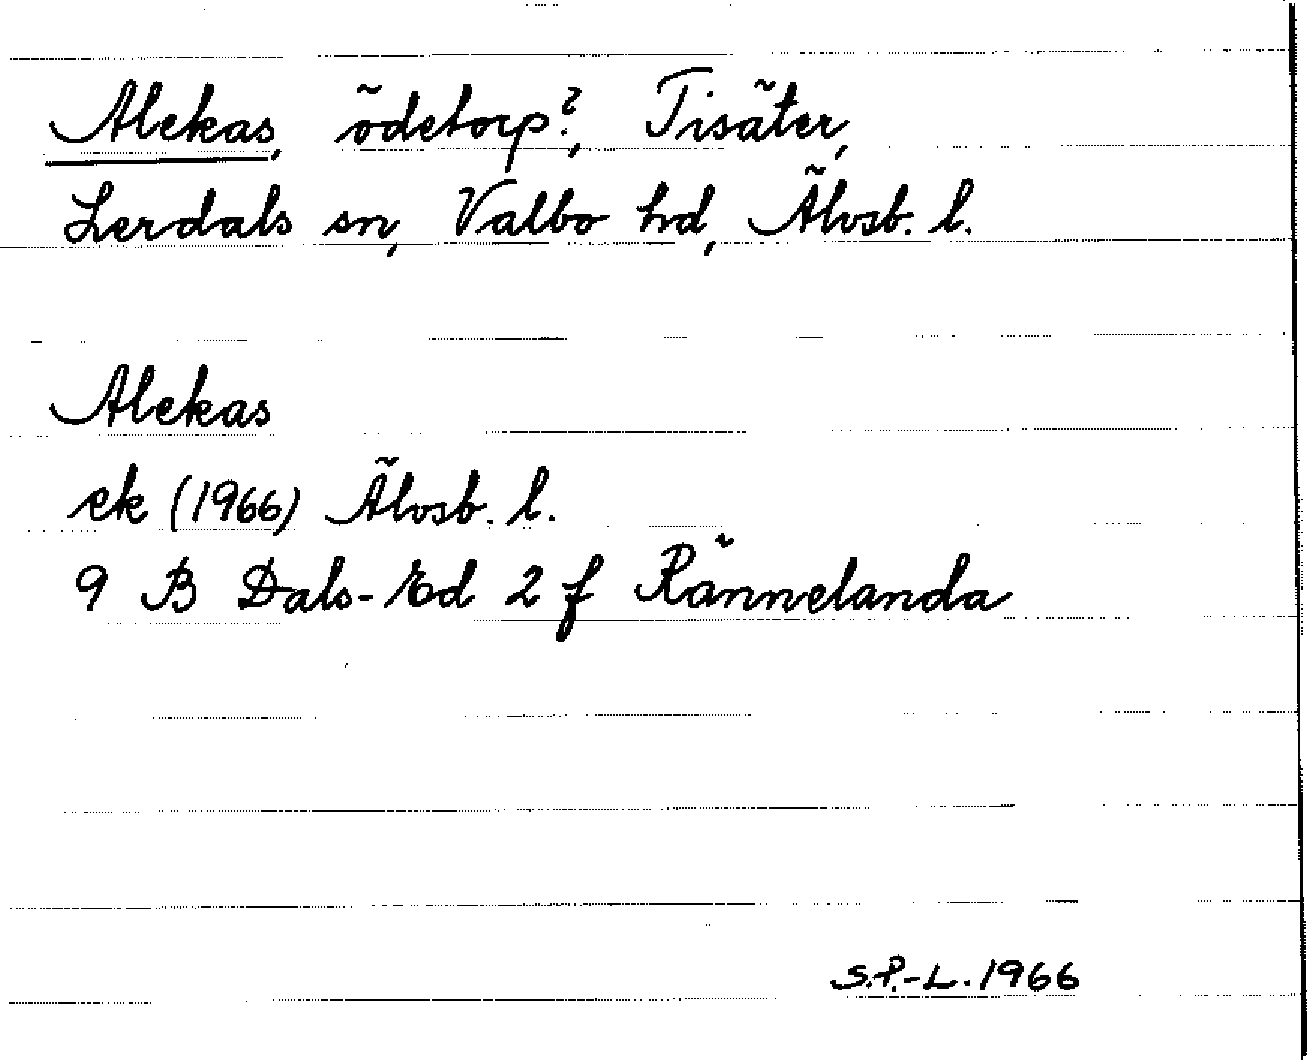 Alekas, ödetorp?, Tisäter,
Lerdals sn, Valbo hd, Älvsb. l.
Alekas
ek (1966) Älvsb. l.
9 B Dals-Ed 2 f Rännelanda
S.P.-L. 1966